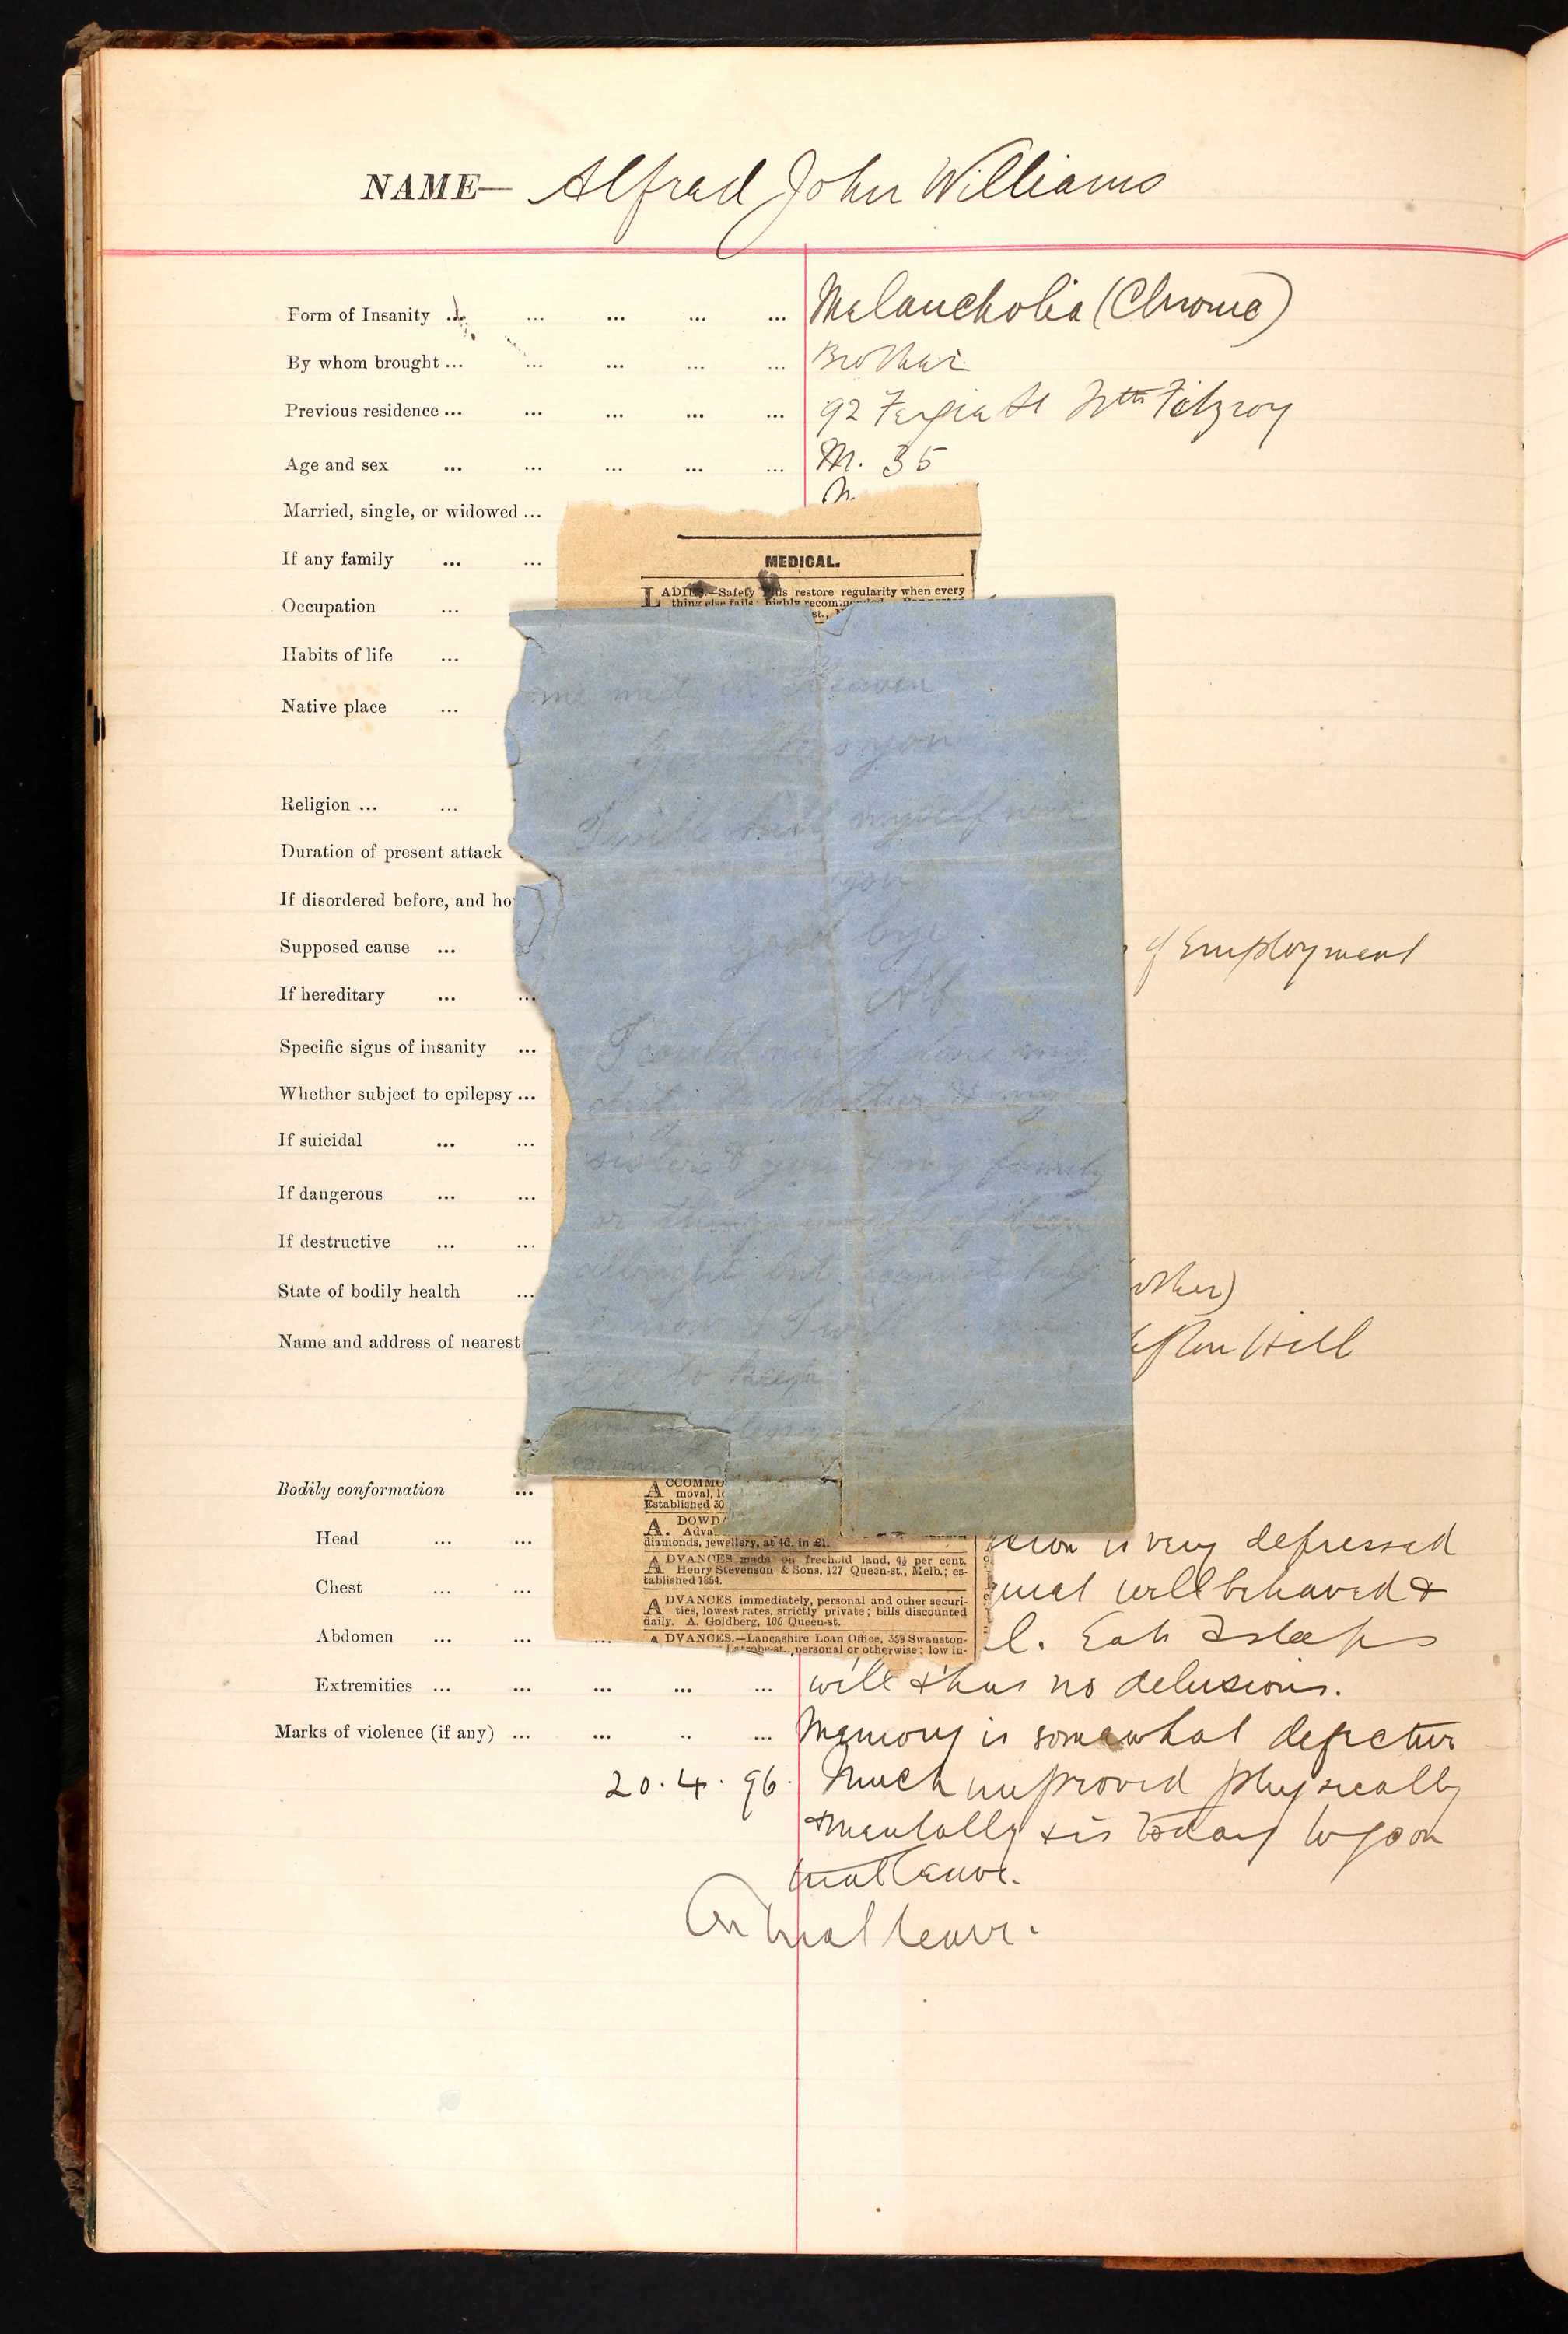 NAME— Alfred John Williams
Form of Insanity ... ... ... ... ... Melancholia (Chronic)
By whom brought ... ... ... ... ... Brother
Previous residence ... ... ... ... ... 92 St Nth Fitzroy
Age and sex ... ... ... ... ... M. 35
Married, single, or widowed ... M.
MEDICAL.
If any family ... ...
LADIES.—Safety Pills restore regularity when every
thing else fails; highly recommended.
st.,
Occupation ...
Habits of life ...
me meet in Heaven
Native place ...
God bless you
Religion ... ...
I will kill myself
Duration of present attack
you
If disordered before, and ho
Good bye
Supposed cause ... of Employment
Alf
If hereditary ... ...
I could of done my
Specific signs of insanity ...
duty to Mother & my
Whether subject to epilepsy ...
If suicidal ... ...
sisters & you & my family
If dangerous ... ...
or things would of been
If destructive ... ...
allright but I cannot help
State of bodily health ... other)
it now & I will
Name and address of nearest Hill
to keep
Bodily conformation ...
ACCOMMO
moval, lo
Established 30
A. DOWD
Adva
diamonds, jewellery, at 4d. in £1.
Head ... ... is very depressed
ADVANCES made on freehold land, 4½ per cent.
Henry Stevenson & Sons, 127 Queen-st., Melb.; es-
tablished 1864.
Chest ... ... well behaved &
ADVANCES immediately, personal and other securi-
ties, lowest rates, strictly private; bills discounted
daily. A. Goldberg, 106 Queen-st.
Abdomen ... ... ... l. Eats & sleeps
ADVANCES.—Lancashire Loan Office, 359 Swanston-
Latrobe-st., personal or otherwise; low in-
Extremities ... ... ... ... ... well & has no delusions.
Marks of violence (if any) ... ... .. ... Memory is somewhat defective
20.4.96. Much improved physically
& mentally & is today to go on
trial leave.
On trial leave.